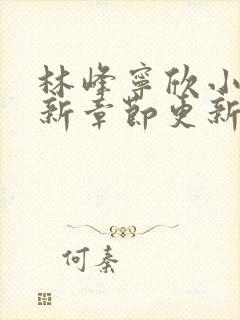 林峰寧欣小
新章節更新
何秦